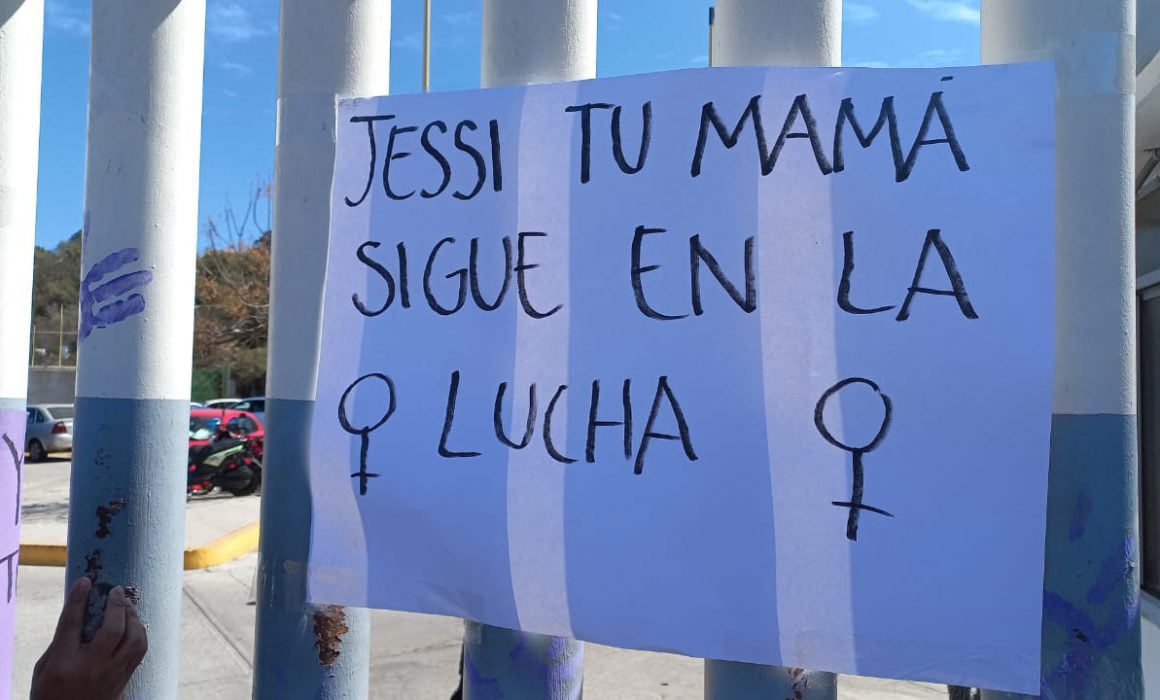 JESSI TU MAMÁ
SIGUE EN LA
♀ LUCHA ♀